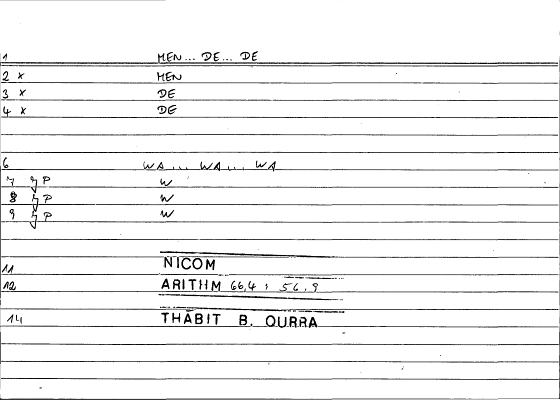 1 MEN... DE... DE
2 x MEN
3 x DE
4 x DE
6 WA... WA... WA
7 P W
8 P W
9 P W
11 NICOM
12 ARITHM 66,4 ; 56,9
14 THĀBIT B. QURRA